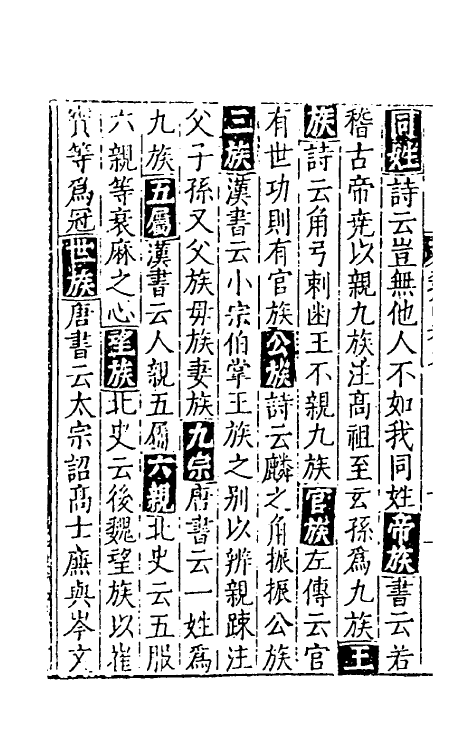 同姓詩云豈無他人不如我同姓帝族書云若
稽古帝堯以親九族注高祖至玄孫爲九族王
族詩云角弓刺幽王不親九族官族左傳云官
有世功則有官族公族詩云麟之角振振公族
三族漢書云小宗伯掌王族之别以辨親踈注
父子孫又父族毋族妻族九宗唐書云一姓爲
九族五屬漢書云人親五屬六親北史云五服
六親等衰麻之心望族北史云後魏望族以崔
等爲冠世族唐書云太宗詔高士廉與岑文